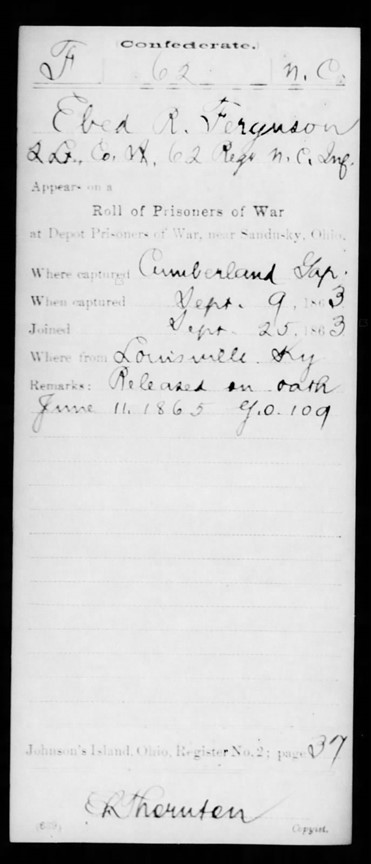 Confederate.
F 62 N. C.
Ebed R. Ferguson
2 Lt., Co. , 62 Regt N. C. Inf.
Appears on a
Roll of Prisoners of War
at Depot Prisoners of War, near Sandusky, Ohio.
Where captured Cumberland Gap.
When captured Sept. 9, 1863
Joined Sept. 25, 1863
Where from Louisville Ky
Remarks: Released on oath
June 11. 1865 G.O. 109
Johnson's Island, Ohio, Register No. 2; page 37
Thornton
Copyist.